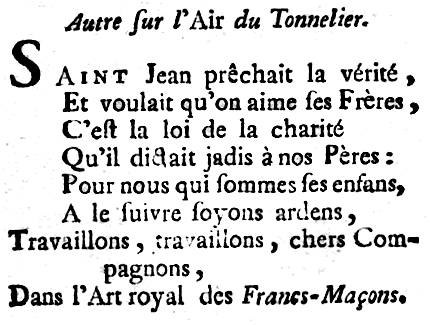 Autre ſur l'Air du Tonnelier.
SAINT Jean prêchait la vérité,
Et voulait qu'on aime ſes Frères,
C'eſt la loi de la charité
Qu'il dictait jadis à nos Pères :
Pour nous qui ſommes ſes enfans,
A le ſuivre ſoyons ardens,
Travaillons, travaillons, chers Com-
pagnons,
Dans l'Art royal des Francs-Maçons.